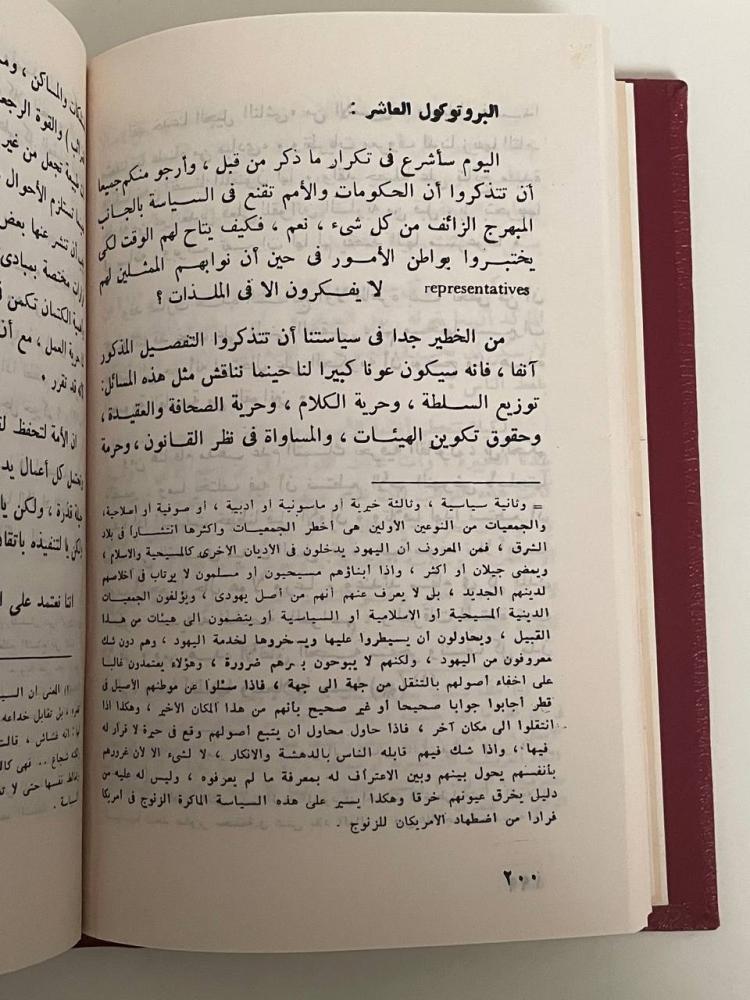 البروتوكول العاشر :
اليوم سأشرع فى تكرار ما ذكر من قبل ، وأرجو منكم جميعا
أن تتذكروا أن الحكومات والأمم تقنع فى السياسة بالجانب
المبهرج الزائف من كل شىء ، نعم ، فكيف يتاح لهم الوقت لكى
يختبروا بواطن الأمور فى حين أن نوابهم الممثلين لهم
representatives لا يفكرون الا فى الملذات ؟
من الخطير جدا فى سياستنا أن تتذكروا التفصيل المذكور
آنفا ، فانه سيكون عونا كبيرا لنا حينما تناقش مثل هذه المسائل :
توزيع السلطة ، وحرية الكلام ، وحرية الصحافة والعقيدة ،
وحقوق تكوين الهيئات ، والمساواة فى نظر القانون ، وحرمة
= وثانية سياسية ، وثالثة خيرية أو ماسونية أو أدبية ، أو صوفية أو اصلاحية،
والجمعيات من النوعين الأولين هى أخطر الجمعيات وأكثرها انتشارا فى بلاد
الشرق ، فمن المعروف أن اليهود يدخلون فى الأديان الأخرى كالمسيحية والاسلام ،
ويمضى جيلان أو أكثر ، واذا ابناؤهم مسيحيون أو مسلمون لا يرتاب فى اخلاصهم
لدينهم الجديد ، بل لا يعرف عنهم أنهم من أصل يهودى ، ويؤلفون الجمعيات
الدينية المسيحية أو الاسلامية أو السياسية أو ينضمون الى هيئات من هذا
القبيل ، ويحاولون أن يسيطروا عليها ويسخروها لخدمة اليهود ، وهم دون شك
معروفون من اليهود ، ولكنهم لا يبوحون بسرهم ضرورة ، وهؤلاء يعتمدون غالبا
على اخفاء أصولهم بالتنقل من جهة الى جهة ، فاذا سئلوا عن موطنهم الأصيل فى
قطر أجابوا جوابا صحيحا أو غير صحيح بأنهم من هذا المكان الأخير ، وهكذا اذا
انتقلوا الى مكان آخر ، فاذا حاول محاول أن يتبع أصولهم وقع فى حيرة لا قرار له
فيها ، واذا شك فيهم قابله الناس بالدهشة والانكار ، لا لشىء الا لأن غرورهم
بأنفسهم يحول بينهم وبين الاعتراف له بمعرفة ما لم يعرفوه ، وليس له عليه من
دليل يخرق عيونهم خرقا وهكذا يسير على هذه السياسة الماكرة الزنوج فى أمريكا
فرارا من اضطهاد الأمريكان للزنوج .
٢٠٠